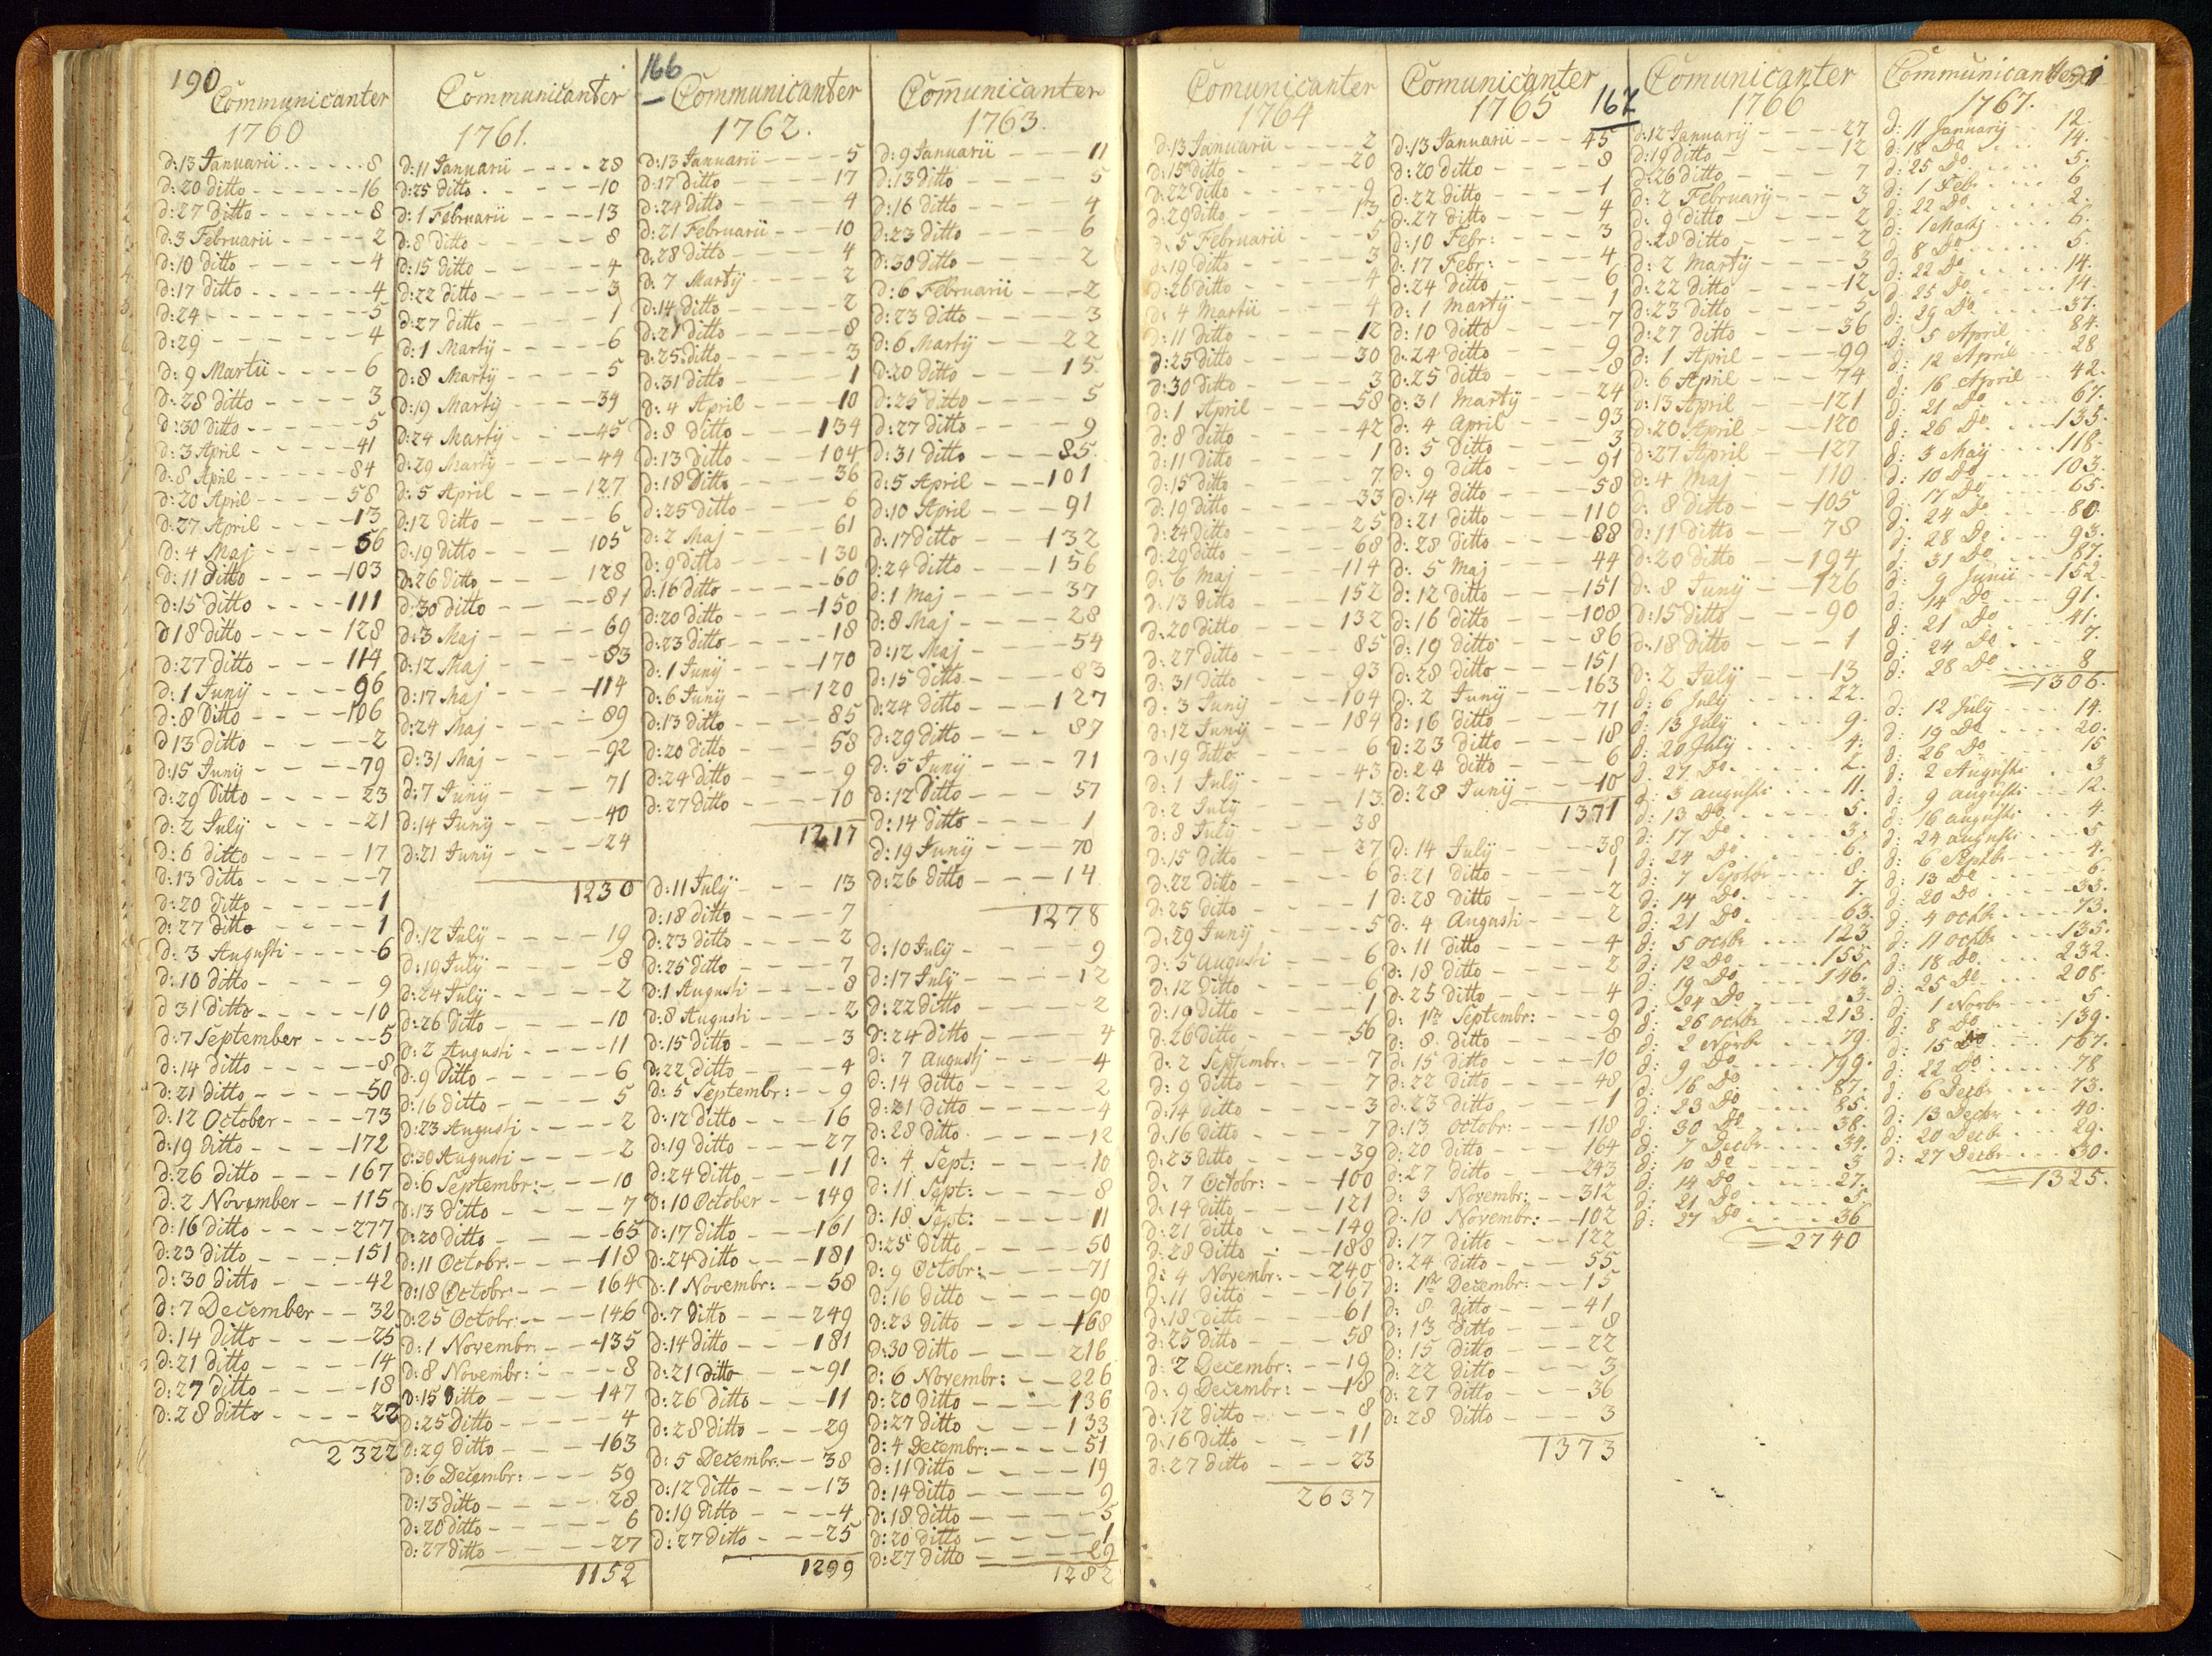 190
Communicanter
1760
d:13 Januarii - - - - - 8
d:20 ditto - - - - - 16
d:27 ditto - - - - - 8
d:3 Februarii - - - - 2
d:10 ditto - - - - - 4
d:17 ditto - - - - - 4
d:24 - - - - - - - 5
d:29 - - - - - - - 4
d:9 Martii - - - - 6
d:28 ditto - - - - 3
d:30 ditto - - - - 5
d:3 April - - - - 41
d:8 April - - - - 84
d:20 April - - - - 58
d:27 April - - - - 13
d:4 Maj - - - - 56
d:11 ditto - - - - 103
d:15 ditto - - - - 111
d 18 ditto - - - - 128
d:27 ditto - - - - 114
d:1 Junij - - - - 96
d:8 ditto - - - - 106
d 13 ditto - - - - 2
d:15 Junij - - - - 79
d:29 ditto - - - - 23
d:2 Julij - - - - 21
d:6 ditto - - - - 17
d:13 ditto - - - - 7
d:20 ditto - - - - 1
d:27 ditto - - - - 1
d:3 Augusti - - - - 6
d:10 ditto - - - - 9
d 31 ditto - - - - 10
d:7 September - - - - 5
d:14 ditto - - - - 8
d:21 ditto - - - - 50
d:12 October - - - - 73
d:19 ditto - - - - 172
d:26 ditto - - - 167
d:2 November - - 115
d:16 ditto - - - - 277
d:23 ditto - - - - 151
d:30 ditto - - - - 42
d:7 December - - 32
d:14 ditto - - - - 25
d:21 ditto - - - - 14
d:27 ditto - - - - 18
d:28 ditto - - - - 22
2322
Communicanter
1761.
d:11 Januarii - - - - 28
d:25 ditto - - - - 10
d:1 Februarii - - - - 13
d:8 ditto - - - - 8
d:15 ditto - - - - 4
d:22 ditto - - - - 3
d:27 ditto - - - - 1
d:1 Martij - - - - 6
d:8 Martij - - - - 5
d:19 Martij - - - - 39
d:24 Martij - - - - 45
d:29 Martij - - - - 44
d:5 April - - - 127
d:12 ditto - - - - 6
d:19 ditto - - - - 105
d:26 ditto - - - - 128
d:30 ditto - - - - 81
d:3 Maj - - - - 69
d:12 Maj - - - - 83
d:17 Maj - - - - 114
d:24 Maj - - - - 89
d:31 Maj - - - - 92
d:7 Junij - - - - 71
d:14 Junij - - - - 40
d:21 Junij - - - - 24
1230
d:12 Julij - - - - 19
d:19 Julij - - - - 8
d:24 Julij - - - - 2
d:26 ditto - - - - 10
d:2 Augusti - - - - 11
d:9 ditto - - - - 6
d:16 ditto - - - - 5
d:23 Augusti - - - - 2
d:30 Augusti - - - - 2
d:6 Septembr: - - - 10
d:13 ditto - - - - 7
d:20 ditto - - - - 65
d:11 Octobr: - - - 118
d:18 Octobr: - - - 164
d:25 Octobr: - - - 146
d:1 Novembr: - - 135
d:8 Novembr: - - - 8
d:15 ditto - - - - 147
d:25 ditto - - - - 4
d:29 ditto - - - - 163
d:6 Decembr: - - - 59
d:13 ditto - - - - 28
d:20 ditto - - - - 6
d:27 ditto - - - - 27
1152
166
Communicanter
1762.
d:13 Januarii - - - - 5
d:17 ditto - - - - 17
d:24 ditto - - - - 4
d:21 Februarii - - - 10
d:28 ditto - - - - 4
d:7 Martij - - - - 2
d:14 ditto - - - - 2
d:21 ditto - - - - 8
d:25 ditto - - - - 3
d:31 ditto - - - - 1
d:4 April - - - - 10
d:8 ditto - - - 134
d:13 ditto - - - 104
d:18 ditto - - - 36
d:25 ditto - - - - 6
d:2 Maj - - - - 61
d:9 ditto - - - - 130
d:16 ditto - - - - 60
d:20 ditto - - - - 150
d:23 ditto - - - - 18
d:1 Junij - - - - 170
d:6 Junij - - - - 120
d:13 ditto - - - - 85
d:20 ditto - - - - 58
d:24 ditto - - - - 9
d:27 ditto - - - - 10
1217
d:11 Julij - - - 13
d:18 ditto - - - - 7
d:23 ditto - - - - 2
d:25 ditto - - - - 7
d:1 Augusti - - - - 8
d:8 Augusti - - - - 2
d:15 ditto - - - - 3
d:22 ditto - - - - 4
d:5 Septembr: - - 9
d:12 ditto - - - 16
d:19 ditto - - - 27
d:24 ditto - - - 11
d:10 October - - 149
d:17 ditto - - - 161
d:24 ditto - - - 181
d:1 Novembr: - - 58
d:7 ditto - - - 249
d:14 ditto - - - 181
d:21 ditto - - - 91
d:26 ditto - - - 11
d:28 ditto - - - 29
d:5 Decembr: - - 38
d:12 ditto - - - 13
d:19 ditto - - - 4
d:27 ditto - - - 25
1299
Com̄unicanter
1763.
d:9 Januarii - - - 11
d:13 ditto - - - 5
d:16 ditto - - - 4
d:23 ditto - - - 6
d:30 ditto - - - 2
d:6 Februarii - - - 2
d:23 ditto - - - - 3
d:6 Martij - - - 22
d:20 ditto - - - 15
d:25 ditto - - - 5
d:27 ditto - - - 9
d:31 ditto - - - 85
d:5 April - - - 101
d:10 April - - - 91
d:17 ditto - - - 132
d:24 ditto - - - 156
d:1 Maj - - - - 37
d:8 Maj - - - - 28
d:12 Maj - - - - 54
d:15 ditto - - - - 83
d:24 ditto - - - 127
d:29 ditto - - - 87
d:5 Junij - - - - 71
d:12 ditto - - - - 57
d:14 ditto - - - - 1
d:19 Junij - - - - 70
d:26 ditto - - - 14
1278
d:10 Julij - - - - 9
d:17 Julij - - - - 12
d:22 ditto - - - - 2
d:24 ditto - - - - 4
d:7 Augustj - - - - 4
d:14 ditto - - - - 2
d:21 ditto - - - - 4
d:28 ditto - - - - 12
d:4 Sept: - - - - 10
d:11 Sept: - - - - 8
d:18 Sept: - - - - 11
d:25 ditto - - - - 50
d:9 Octobr: - - - - 71
d:16 ditto - - - - 90
d:23 ditto - - - - 168
d:30 ditto - - - - 216
d:6 Novembr: - - 226
d:20 ditto - - - 136
d:27 ditto - - - 133
d:4 Decembr: - - - 51
d:11 ditto - - - - 19
d:14 ditto - - - - 9
d:18 ditto - - - - 5
d:20 ditto - - - - 1
d:27 ditto - - - - 29
1282
Comunicanter
1764
d:13 Januarii - - - - 2
d:15 ditto - - - - 20
d:22 ditto - - - - 9
d:29 ditto - - - - 13
d:5 Februarii - - - 5
d:19 ditto - - - - 3
d:26 ditto - - - - 4
d:4 Martii - - - - 4
d:11 ditto - - - - 12
d:25 ditto - - - - 30
d:30 ditto - - - - 3
d:1 April - - - - 58
d:8 ditto - - - - 42
d:11 ditto - - - - 1
d:15 ditto - - - - 7
d:19 ditto - - - - 33
d:24 ditto - - - - 25
d:29 ditto - - - - 68
d:6 Maj - - - - 114
d:13 ditto - - - - 152
d:20 ditto - - - - 132
d:27 ditto - - - - 85
d:31 ditto - - - - 93
d:3 Junij - - - - 104
d:12 Junij - - - - 184
d:19 ditto - - - - 6
d:1 Julij - - - - 43
d:2 Julij - - - - 13
d:8 Julij - - - - 38
d:15 ditto - - - - 27
d:22 ditto - - - - 6
d:25 ditto - - - - 1
d:29 Junij - - - - 5
d:5 Augusti - - - 6
d:12 ditto - - - - 6
d:19 ditto - - - - 1
d:26 ditto - - - - 56
d:2 Septembr: - - - 7
d:9 ditto - - - - 7
d:14 ditto - - - - 3
d:16 ditto - - - - 7
d:23 ditto - - - - 39
d:7 Octobr: - - - 100
d:14 ditto - - - 121
d:21 ditto - - - 149
d:28 ditto - - - 188
d:4 Novembr: - - 240
d:11 ditto - - - 167
d:18 ditto - - - 61
d:25 ditto - - - 58
d:2 Decembr: - - 19
d:9 Decembr: - - 18
d:12 ditto - - - - 8
d:16 ditto - - - 11
d:27 ditto - - - 23
2637
Comunicanter
1765
167
d:13 Januarii - - - 45
d:20 ditto - - - - 8
d:22 ditto - - - - 1
d:27 ditto - - - - 4
d:10 Febr: - - - - 3
d:17 Febr: - - - - 4
d:24 ditto - - - - 6
d:1 Martij - - - - 1
d:10 ditto - - - - 7
d:24 ditto - - - - 9
d:25 ditto - - - - 8
d:31 Martij - - - 24
d:4 April - - - - 93
d:5 ditto - - - - 3
d:9 ditto - - - - 91
d:14 ditto - - - - 58
d:21 ditto - - - - 110
d:28 ditto - - - - 88
d:5 Maj - - - - 44
d:12 ditto - - - 151
d:16 ditto - - - 108
d:19 ditto - - - 86
d:28 ditto - - - 151
d:2 Junij - - - 163
d:16 ditto - - - 71
d:23 ditto - - - 18
d:24 ditto - - - 6
d:28 Junij - - - 10
1371
d:14 Julij - - - - 38
d:21 ditto - - - - 1
d:28 ditto - - - - 2
d:4 Augusti - - - - 2
d:11 ditto - - - - 4
d:18 ditto - - - - 2
d:25 ditto - - - - 4
d:1 Septembr: - - - 9
d:8 ditto - - - - 8
d:15 ditto - - - - 10
d:22 ditto - - - - 48
d:23 ditto - - - - 1
d:13 Octobr: - - - 118
d:20 ditto - - - 164
d:27 ditto - - - 243
d:3 Novembr: - - 312
d:10 Novembr: - - 102
d:17 ditto - - - 122
d:24 ditto - - - 55
d:1 Decembr: - - 15
d:8 ditto - - - 41
d:13 ditto - - - 8
d:15 ditto - - - 22
d:22 ditto - - - 3
d:27 ditto - - - 36
d:28 ditto - - - 3
1373
Comunicanter
1766
d:12 Januarij - - - 27
d:19 ditto - - - 12
d:26 ditto - - - 7
d:2 Februarij - - - 3
d:9 ditto - - - 2
d:28 ditto - - - 2
d:2 Martij - - - 3
d:22 ditto - - - 12
d:23 ditto - - - 5
d:27 ditto - - - 36
d:1 April - - - 99
d:6 April - - - 74
d:13 April - - - 121
d:20 April - - - 120
d:27 April - - - 127
d:4 Maj - - - 110
d:8 ditto - - - 105
d:11 ditto - - - 78
d:20 ditto - - - 194
d:8 Junij - - - 126
d:15 ditto - - - 90
d:18 ditto - - - 1
d:2 Julij - - - 13
d:6 Julij - - - 22.
d:13 Julij - - - 9.
d:20 Julij - - - 4.
d:27 Do. - - - 2.
d:3 augusti - - - 11.
d:13 Do. - - - 5.
d:17 Do - - - 3.
d:24 Do - - - 6.
d:7 Septbr - - - 8.
d:14 Do. - - - 7.
d:21 Do. - - - 63.
d:5 octbr - - - 123
d:12 Do - - - 155.
d:19 Do - - - 146.
d:24 Do - - - 3.
d:26 octbr - - - 213.
d:2 Novbr - - - 79.
d:9 Do - - - 199.
d:16 Do - - - 87.
d:23 Do - - - 85.
d:30 Do - - - 38.
d:7 Decbr - - - 34.
d:10 Do - - - 3
d:14 Do - - - 27.
d:21 Do - - - 5.
d:27 Do - - - 36
2740
Communicanter
1767.
d:11 Januarij - - - 12.
d:18 Do - - - 14.
d:25 Do - - - 5.
d:1 Febr - - - 6
d:22 Do - - - 2.
d:1 Martj - - - 6.
d:8 Do - - - 5.
d:22 Do - - - 14.
d:25 Do - - - 14.
d:29 Do - - - 37.
d:5 April - - - 84.
d:12 April - - - 28
d:16 April - - - 42.
d:21 Do - - - 67.
d:26 Do - - - 135.
d:3 Maij - - - 118.
d:10 Do - - - 103.
d:17 Do - - - 65.
d:24 Do - - - 80.
d:28 Do - - - 93.
d:31 Do - - - 87.
d:9 Junii - - - 152.
d:14 Do - - - 91.
d:21 Do - - - 41.
d:24 Do - - - 7.
d:28 Do - - - 8
1306.
d:12 July - - - 14.
d:19 Do - - - 20.
d:26 Do - - - 15
d:2 Augusti - - 3
d:9 augusti - - 12.
d:16 augusti - - 4.
d:24 augusti - - 5
d:6 Septbr - - - 4.
d:13 Do - - - 6.
d:20 Do - - - 33.
d:4 octbr - - - 73.
d:11 octbr - - - 135.
d:18 Do. - - - 232.
d:25 Do - - - 208.
d:1 Novbr - - - 5.
d:8 Do - - - 139.
d:15 Do - - - 167.
d:22 Do - - - 78
d:6 Decbr - - - 73.
d:13 Decbr - - - 40.
d:20 Decbr - - - 29.
d:27 Decbr - - - 30.
1325.